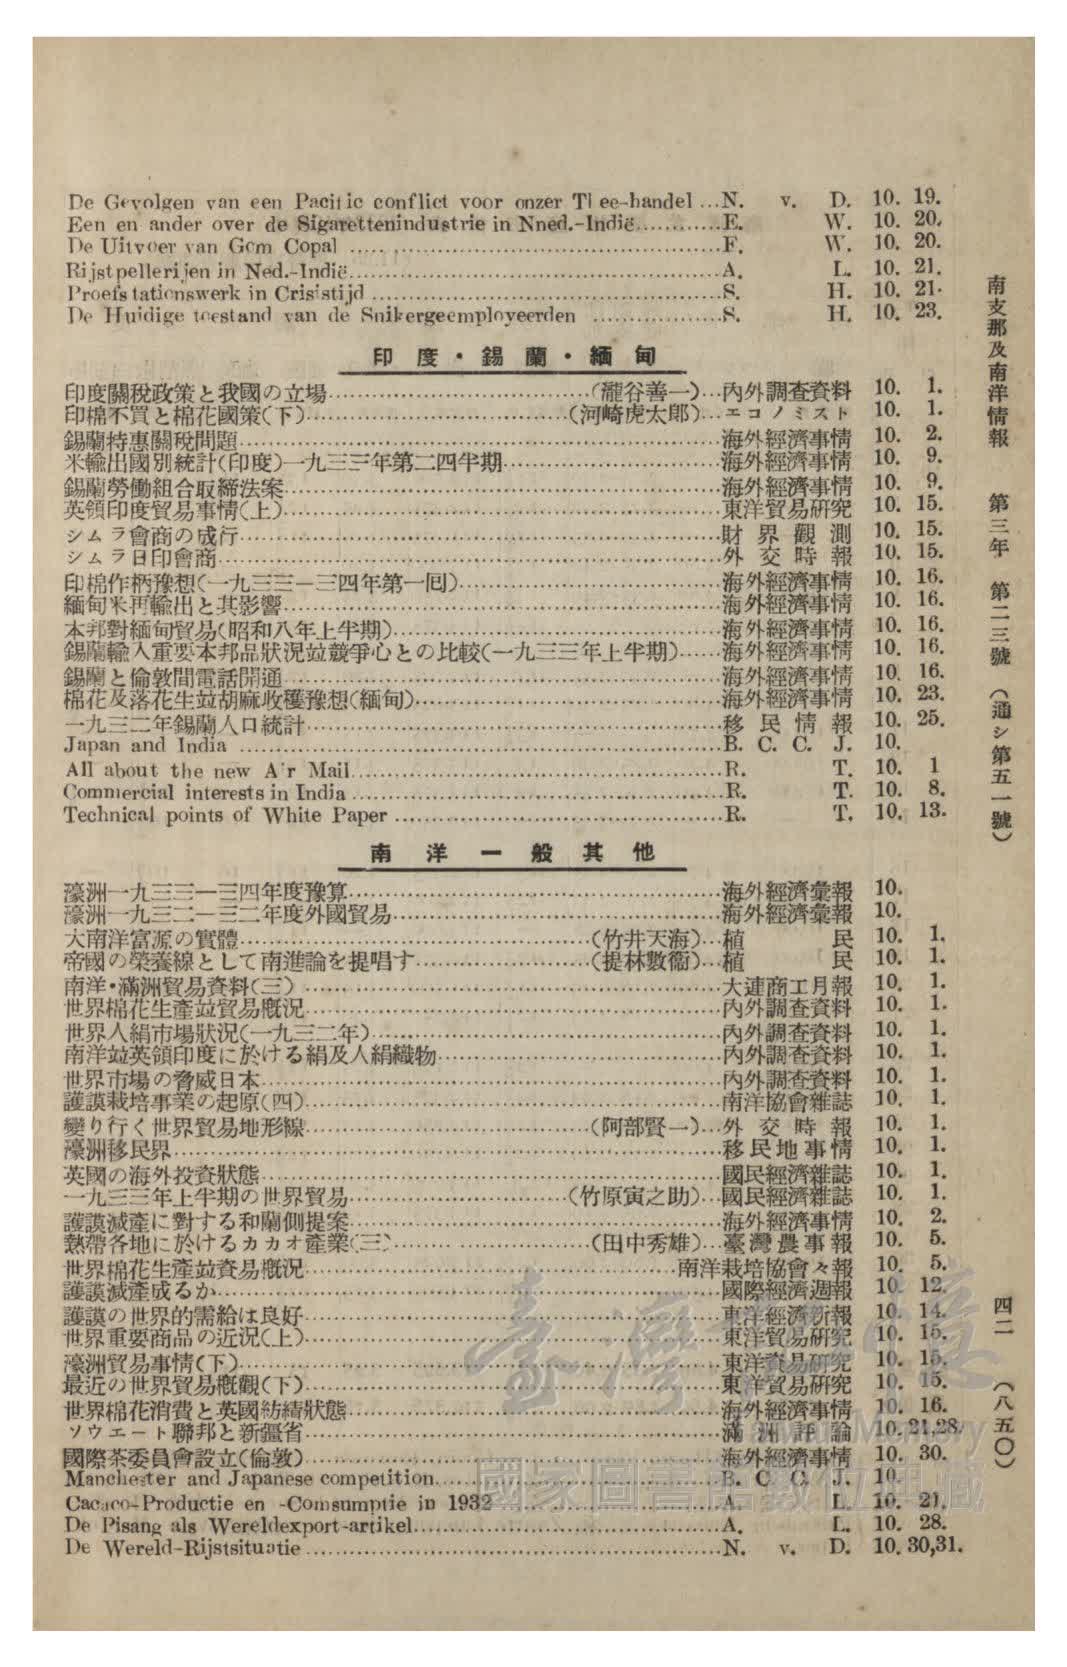 De Gevolgen van een Pacific conflict voor onzer Thee-handel...N. v. D. 10. 19.
Een en ander over de Sigarettenindustrie in Nned.-Indië............E. W. 10. 20.
De Uitvoer van Gom Copal ............F. W. 10. 20.
Rijstpellerijen in Ned.-Indië............A. L. 10. 21.
Proefstationswerk in Crisistijd ............S. H. 10. 21.
De Huidige toestand van de Snikergeemployeerden ............S. H. 10. 23.
印度・錫蘭・緬甸
印度關税政策と我國の立場............(瀧谷善一)...内外調査資料 10. 1.
印棉不買と棉花國策(下)............(河崎虎太郎)...エコノミスト 10. 1.
錫蘭特惠關税問題............海外經濟事情 10. 2.
米輸出國別統計(印度)一九三三年第二四半期............海外經濟事情 10. 9.
錫蘭勞働組合取締法案............海外經濟事情 10. 9.
英領印度貿易事情(上)............東洋貿易研究 10. 15.
シムラ會商の成行............財界觀測 10. 15.
シムラ日印會商............外交時報 10. 15.
印棉作柄豫想(一九三三—三四年第一回)............海外經濟事情 10. 16.
緬甸米再輸出と其影響............海外經濟事情 10. 16.
本邦對緬甸貿易(昭和八年上半期)............海外經濟事情 10. 16.
錫蘭輸入重要本邦品狀況竝競爭心との比較(一九三三年上半期)......海外經濟事情 10. 16.
錫蘭と倫敦間電話開通............海外經濟事情 10. 16.
棉花及落花生竝胡麻收穫豫想(緬甸)............海外經濟事情 10. 23.
一九三二年錫蘭人口統計............移民情報 10. 25.
Japan and India ............B. C. C. J. 10.
All about the new Air Mail............R. T. 10. 1
Commercial interests in India............R. T. 10. 8.
Technical points of White Paper ............R. T. 10. 13.
南洋一般其他
濠洲一九三三—三四年度豫算............海外經濟彙報 10.
濠洲一九三一—三二年度外國貿易............海外經濟彙報 10.
大南洋富源の實體............(竹井天海)...植民 10. 1.
帝國の榮養線として南進論を提唱す............(提林數衞)...植民 10. 1.
南洋・滿洲貿易資料(三)............大連商工月報 10. 1.
世界棉花生產竝貿易概況............内外調査資料 10. 1.
世界人絹市場狀況(一九三二年)............内外調査資料 10. 1.
南洋竝英領印度に於ける絹及人絹織物............内外調査資料 10. 1.
世界市場の脅威日本............内外調査資料 10. 1.
護謨栽培事業の起原(四)............南洋協會雜誌 10. 1.
變り行く世界貿易地形線............(阿部賢一)...外交時報 10. 1.
濠洲移民界............移民地事情 10. 1.
英國の海外投資狀態............國民經濟雜誌 10. 1.
一九三三年上半期の世界貿易............(竹原寅之助)...國民經濟雜誌 10. 1.
護謨減產に對する和蘭側提案............海外經濟事情 10. 2.
熱帶各地に於けるカカオ產業(三)............(田中秀雄)...臺灣農事報 10. 5.
世界棉花生產竝貿易概況............南洋栽培協會々報 10. 5.
護謨減產成るか............國際經濟週報 10. 12.
護謨の世界的需給は良好............東洋經濟新報 10. 14.
世界重要商品の近況(上)............東洋貿易研究 10. 15.
濠洲貿易事情(下)............東洋貿易研究 10. 15.
最近の世界貿易概觀(下)............東洋貿易研究 10. 15.
世界棉花消費と英國紡績狀態............海外經濟事情 10. 16.
ソウエート聯邦と新疆省............滿洲評論 10. 21,28.
國際茶委員會設立(倫敦)............海外經濟事情 10. 30.
Manchester and Japanese competition............B. C. C. J. 10.
Cacaco-Productie en -Comsumptie in 1932............A. L. 10. 21.
De Pisang als Wereldexport-artikel............A. L. 10. 28.
De Wereld-Rijstsituatie............N. v. D. 10. 30,31.
南支那及南洋情報 第三年 第二三號 (通シ第五一號)
四二 (八五〇)
臺灣記憶
Taiwan Memory
國家圖書館數位典藏